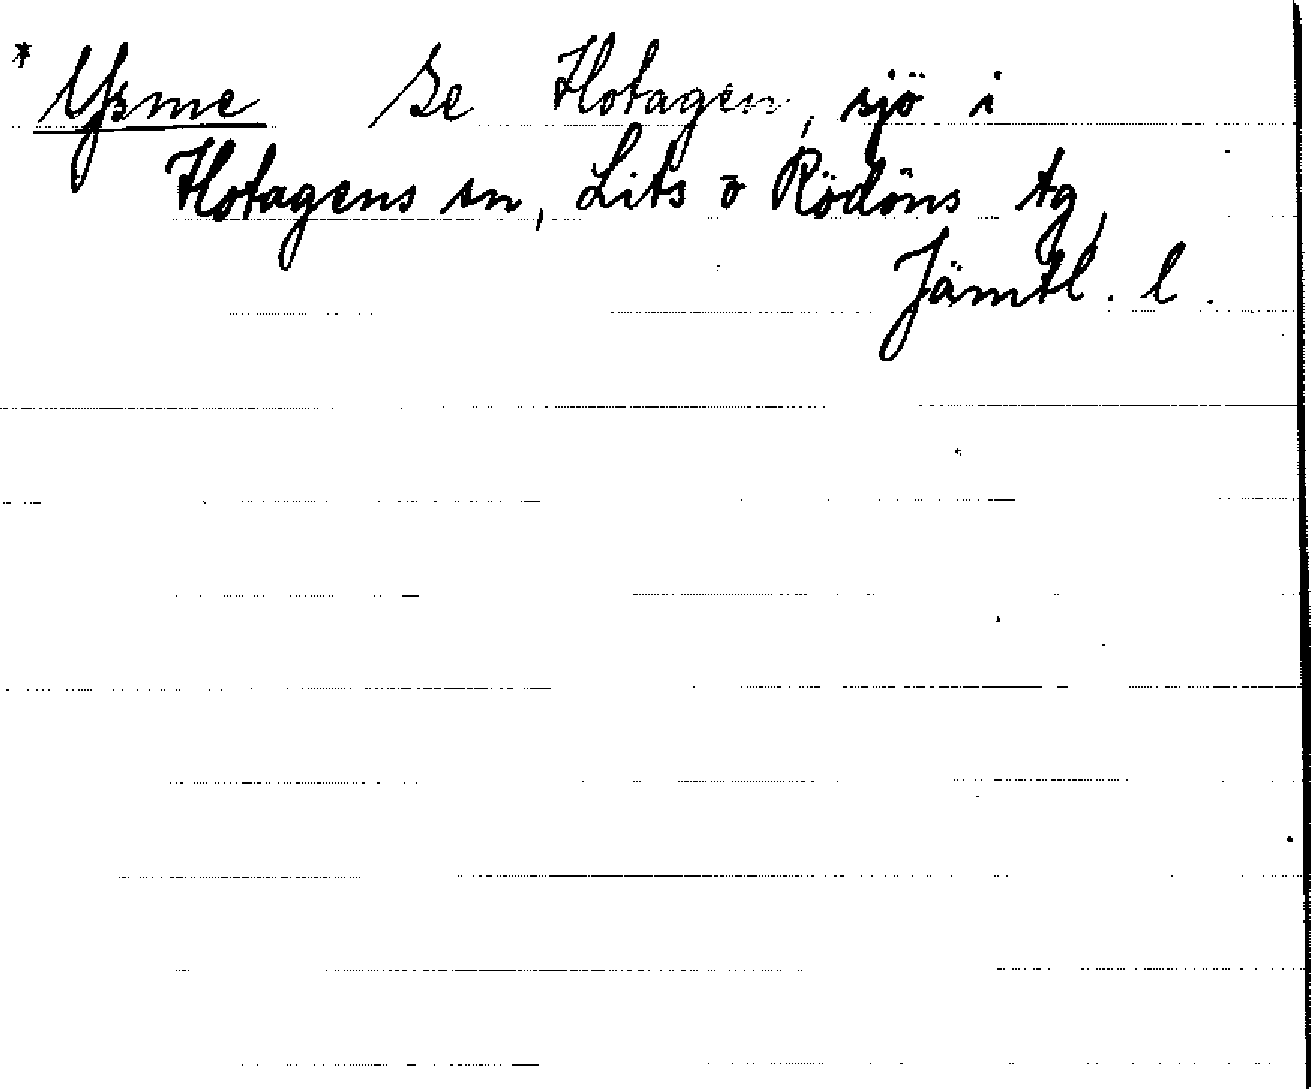 * Ysme Se Hotagen, sjö i
Hotagens sn, Lits o Rödöns tg,
Jämtl. l.